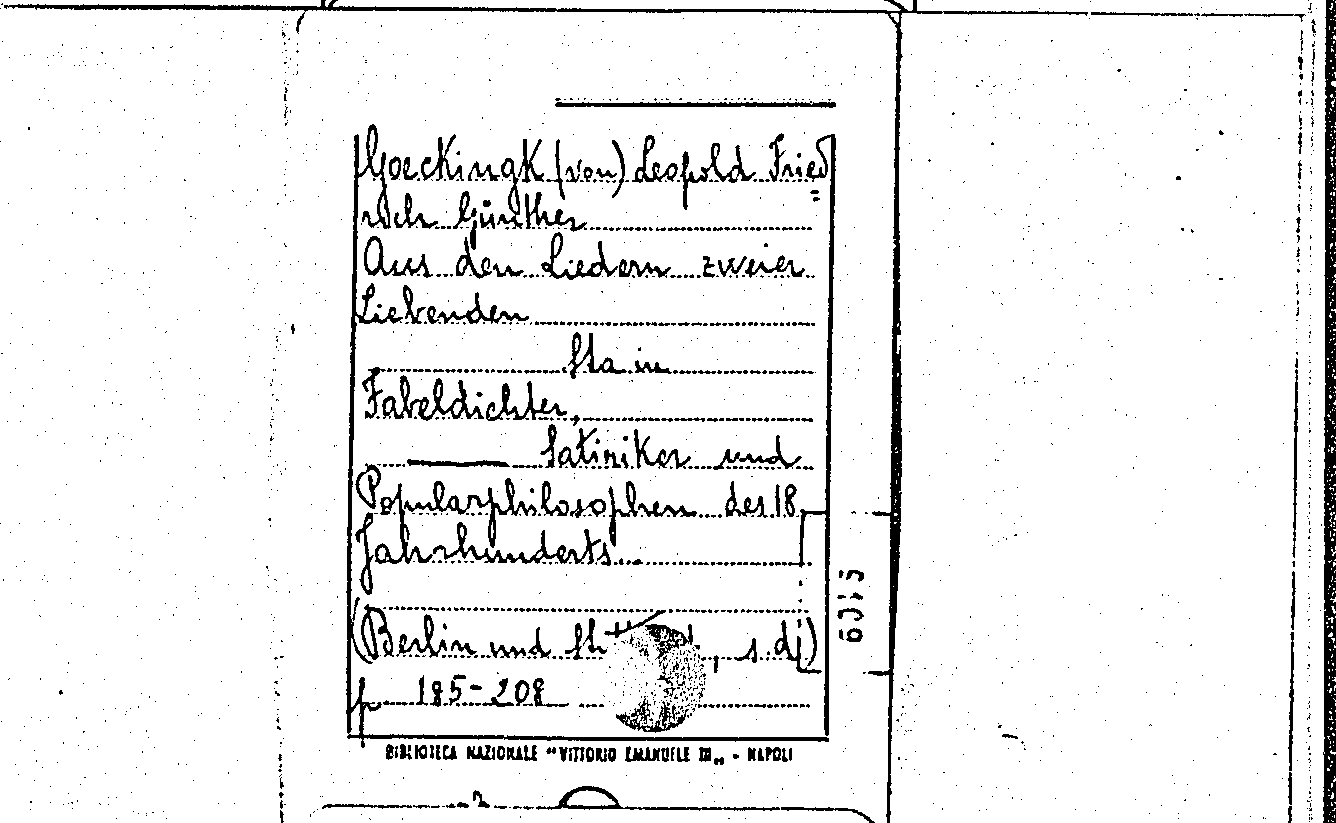 Goeckingk (von) Leopold Fried=
rich Günther
Aus den Liedern zweier
Liebenden
Sta in
Fabeldichter,
Satiriker und
Popularphilosophen des 18.
Jahrhunderts...
(Berlin und , s.d.)
p 185-208
6015
BIBLIOTECA NAZIONALE "VITTORIO EMANUELE III„ - NAPOLI